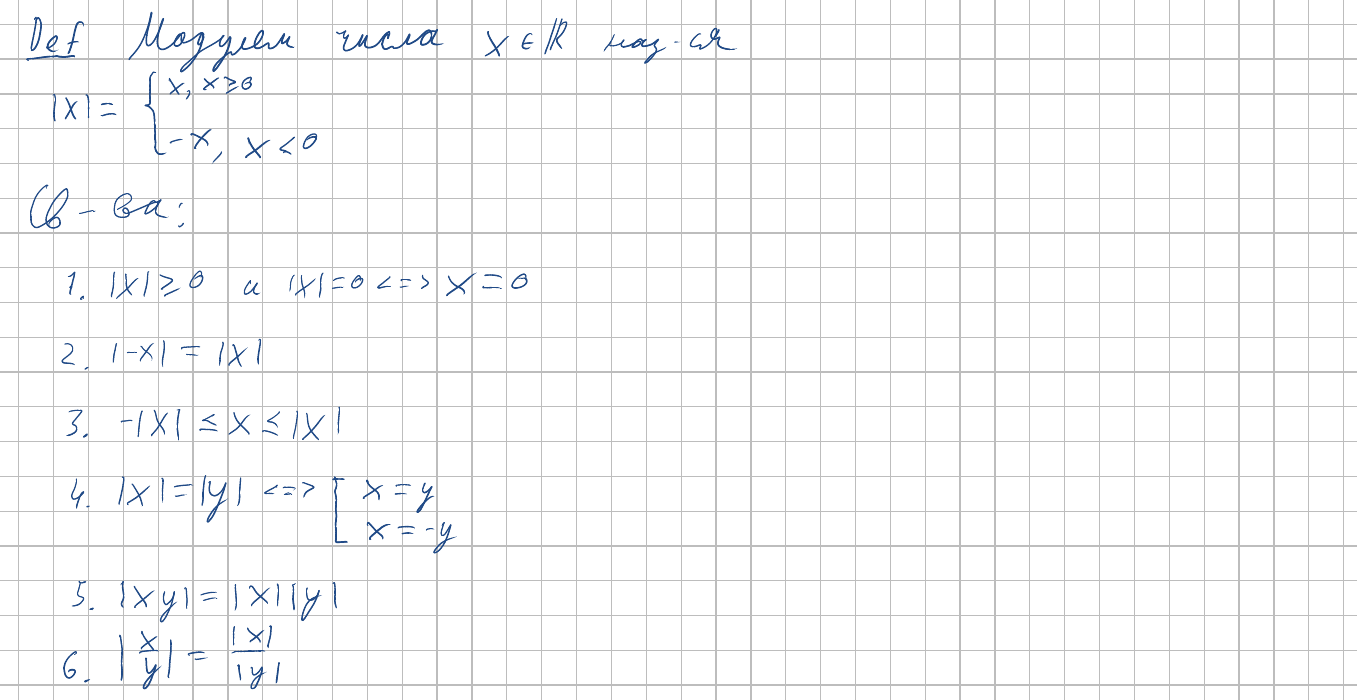 Def Модулем числа x ∈ ℝ наз-ся
|x| = { x, x ≥ 0
-x, x < 0
Св-ва:
1. |x| ≥ 0 и |x| = 0 <=> x = 0
2. |-x| = |x|
3. -|x| ≤ x ≤ |x|
4. |x| = |y| <=> [ x = y
x = -y
5. |xy| = |x||y|
6. |x/y| = |x|/|y|